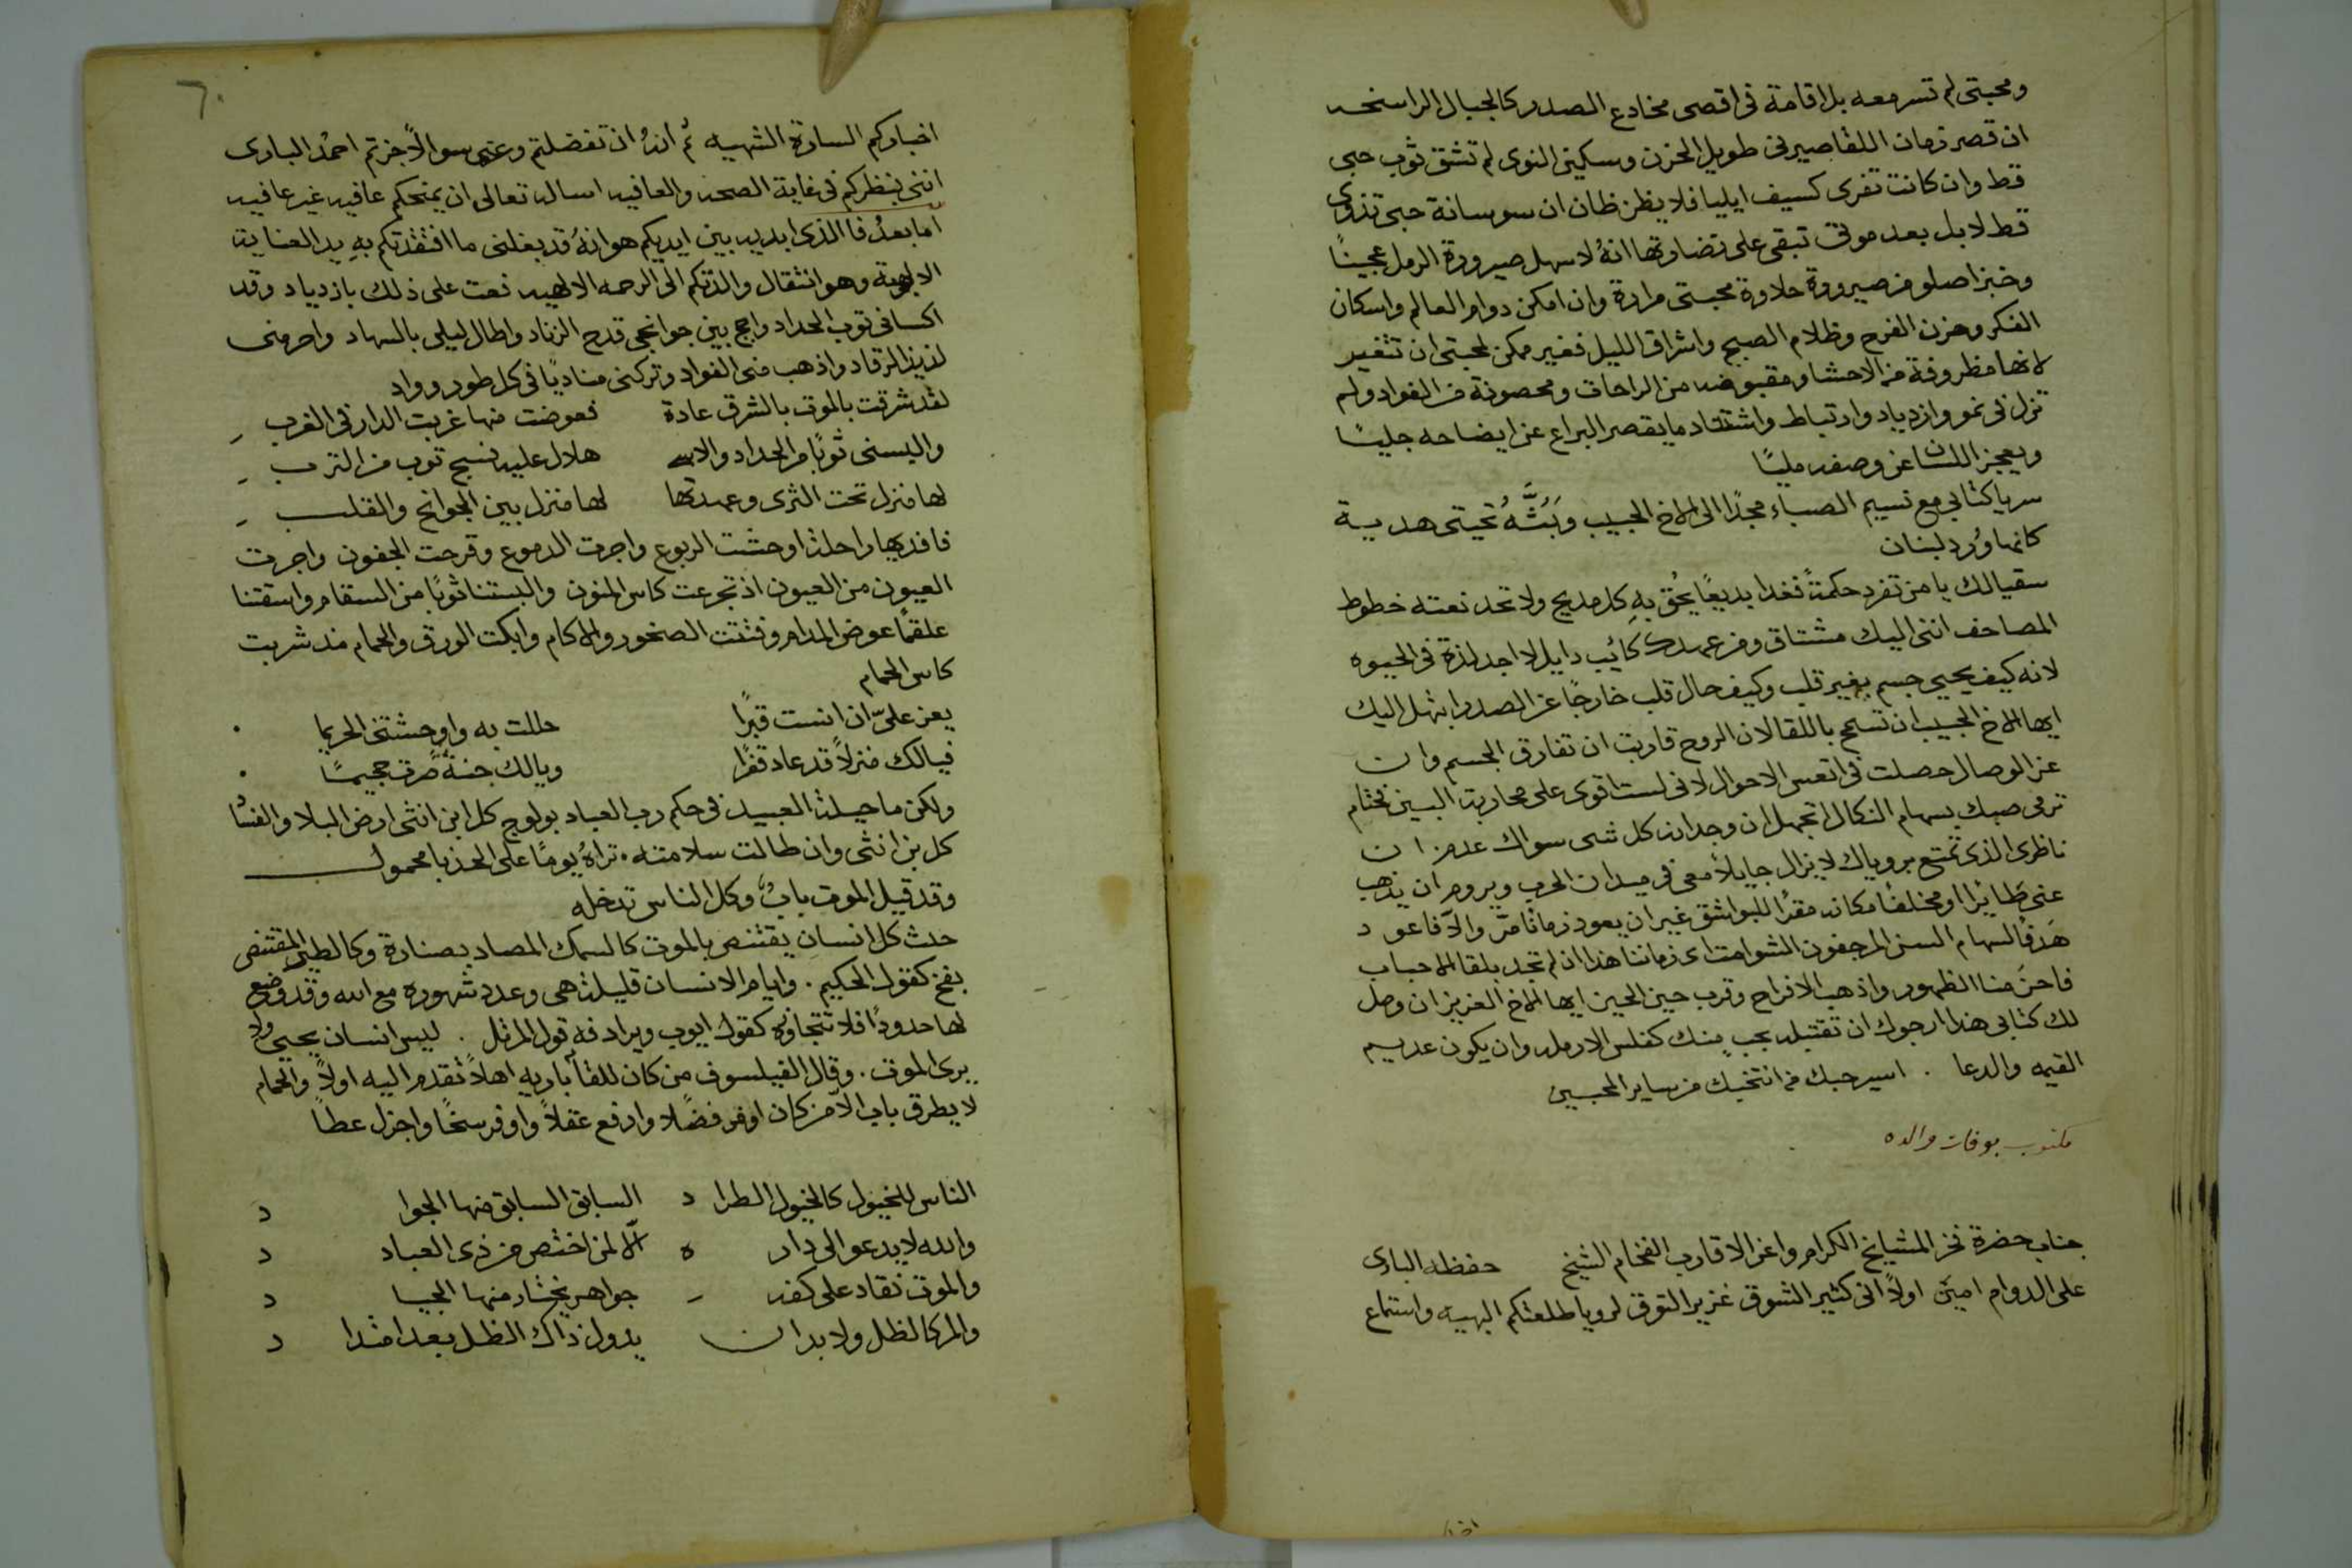 ومحبتى لم تسر معه بل اقامة فى اقصى مخادع الصدر كالجبال الراسخه
ان قصر زمان اللقا صير فى طويل الحزن وسكين النوى لم تشق ثوب حبى
قط وان كانت تفرى كسيف ايليا فلا يظن ظان ان سوسانة حبى تذوى
قط لا بل بعد موتى تبقى على نضارتها انهُ لاسهل صيرورة الرمل عجينًا
وخبزا صلو من صيرورة حلاوة محبتى مرارة وان امكن دوام العالم واسكان
الفكر وحزن الفرح وظلام الصبح واشراق الليل فغير ممكن لمحبتى ان تتغير
لانها مظروفة من الاحشا ومقبوضه من الراحات ومحصونة من الفواد ولم
تزل فى نمو وازدياد وارتباط واشتداد ما يقصر اليراع عن ايضاحه جليًا
ويعجز اللسان عن وصفه مليًا
سر يا كتابى مع نسيم الصباء مجدًا الى الاخ الحبيب وبَثَّهُ تحيتى هدية
كانها وُرد لبنان
سقيا لك يا من تفرد حكمةً فغدا بديعًا يحُق بهِ كل مديح ولا تحد نعته خطوط
المصاحف اننى اليك مشتاق ومن عمدك كائب دايل لا اجد لذة فى الحيوه
لانه كيف يحيى جسم بغير قلب وكيف حال قلب خارجًا عن الصدر ابتهل اليك
ايها الاخ الحبيب ان تسمح باللقا لان الروح قاربت ان تفارق الجسم وان
عز الوصال حصلت فى اتعس الاحوال لانى لست اقوى على محاربة البين
ترمى صبك بسهام النكال اتجهل ان وجدان كل شى سواك عدم ان
ناظرى الذى تمتع بروياك لا يزال جايلاً معى فى ميدان الحرب ويروم ان يذهب
عنى طايرًا او مخلفًا مكانه مقرًا للبواشق غير ان يعود زمانًا مرّ والاّ فاعود
هَدفًا لسهام السن المرجفون الشوامت اى زماننا هذا ان لم تجد بلقا الاحباب
فاحنَ منا الظهور واذهب الافراح وقرب حين الحين ايها الاخ العزيز ان وصل
لك كتابى هذا ارجوك ان تقتبله بحب منك كفلس الارمله وان يكون عديم
القيمه والدعا . اسير حبك من انتخبك من ساير المحبين
مكتوب بوفات والده
جناب حضرة فخر المشايخ الكرام واعز الاقارب الفخام الشيخ حفظه البارى
على الدوام امين اولاً انى كثير الشوق غزير التوق لرويا طلعتكم البهيه واستماع
اخبا
٦٠
اخباركم السارة الشهيه ثم انهُ ان تفضلتم وعنى سوالاً جزتم احمُد البارى
اننى بنظركم فى غاية الصحه والعافيه اساله تعالى ان يمنحكم عافيه غير عافيه
اما بعدُ فالذى ابديه بين ايديكم هو انهُ قد بغلنى ما افتقدتكم بهِ يد العناية
الالهية وهو انتقال والدتكم الى الرحمه الالهيه نعت على ذلك بازدياد وقد
اكسانى ثوب الحداد واجج بين جوانجى قدح الزناد واطال ليلى بالسهاد واحرمنى
لذيذ الرقاد واذهب منى الفواد وتركنى مناديًا فى كل طور وواد
لقد شرقت بالموت بالشرق عادة فعوضت منها غربت الدار فى الغرب
والبسنى ثوبًا من الحداد والاسى هلال عليه نسج ثوب من الترب
لها منزل تحت الثرى وعهدتها لها منزل بين الجوانح والقلب
فافديها راحلة اوحشت الربوع واجرت الدموع وقرحت الجفون واجرت
العيون من العيون اذ تجرعت كاس المنون والبستنا ثوبًا من السقام واسقتنا
علقمًا عوض المدام وفتتت الصخور والاكام وابكت الورق والحمام مذ شربت
كاس الحمام
يعز علىّ ان انست قبرًا حللت به واوحشتنى الحريما
فيالك منزلاً قد عاد قفرًا ويالك جنةً صرت جحيمًا
ولكن ما حيلة العبيد فى حكم رب العباد بولوج كل ابن انثى ارض البلا والفنا
كل بن انثى وان طالت سلامته . تراهُ يومًا على الحدبا محمول
وقد قيل الموت بابٌ وكل الناس تدخله
حدث كل انسان يقتنص بالموت كالسمك المصاد بصنارة وكالطير المقتنص
بفخ كقول الحكيم . وايام الانسان قليلة هى وعدد شهوره مع الله وقد وضع
لها حدودًا فلا تتجاوزه كقول ايوب ويرادفه قول المرتل . ليس انسان يحيى ولا
يرى الموت . وقال الفيلسوف من كان للقا باريه اهلاً تقدم اليه اولاً والحمام
لا يطرق باب الا من كان اوفر فضلا وارفع عقلاً واوفر سخًا واجزل عطاً
الناس للخيول كالخيول الطرا د السابق السابق منها الجوا د
والله لا يدعو الى دار ه الاّ لمن اختص من ذى العبا د
والموت نقاد على كفه جواهر يختار منها الجيا د
والمر كالظل ولا بد ان يزول ذاك الظل بعد امتدا د